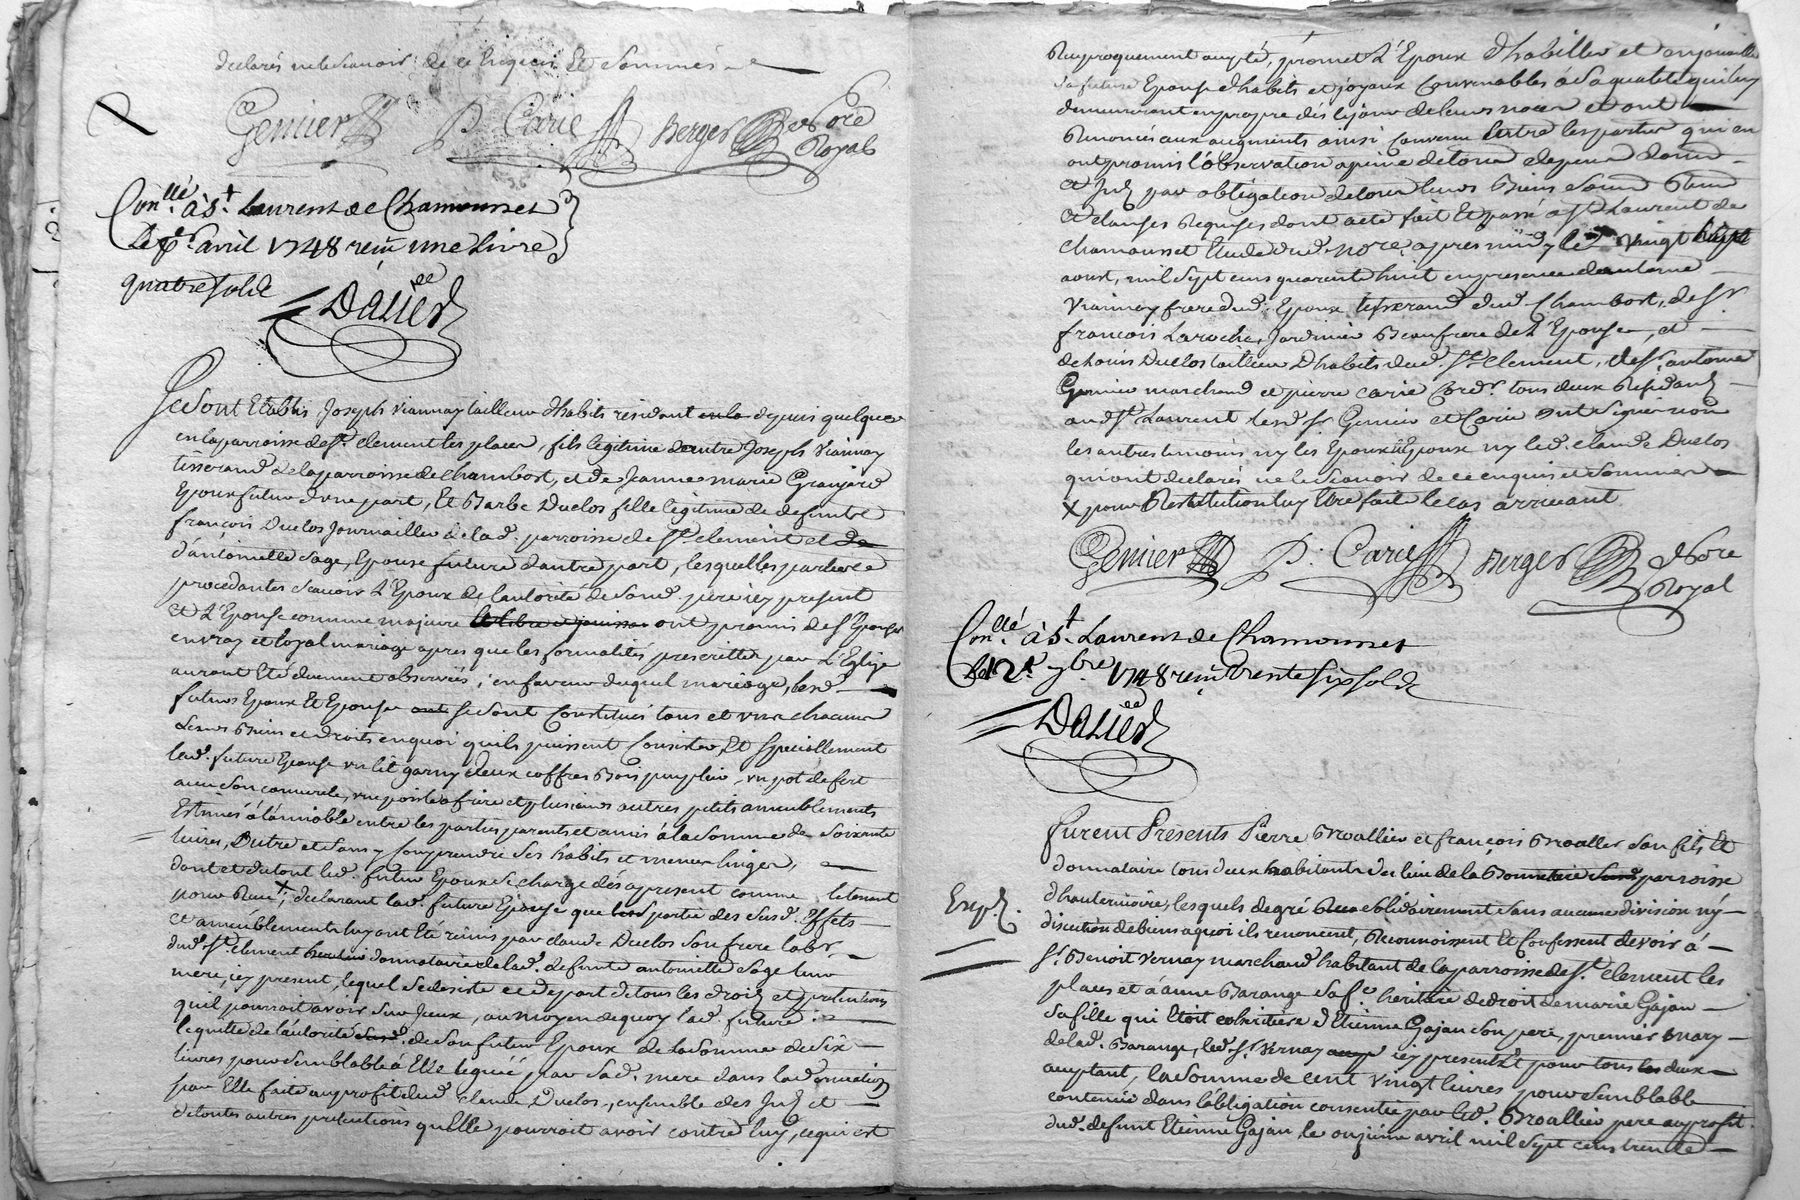 declarés ne le scavoir de ce Enquis Et Sommés
Gemier P. Carie Berger Nore
Royal
Con.llé à S.t Laurent de Chamousset
Le avril 1748 reçu une livre
quatre sols
Dalier
Se sont Etablis Joseph Viannay tailleur d'habits résidant en la depuis quelque
en la parroisse de St. clement les places, fils legitime de autre Joseph Viannay
tisserand de la parroisse de Chambost, et de Jeanne marie Granjard
Epoux futur d'une part, Et Barbe Duclos fille legitime de defunt
françois Duclos Journaillier de lad. parroisse de St. clement et de
d'antoinette Sage, Epouse future d'autre part, lesquelles parties
procedantes scavoir L'Epoux de l'autorité de Sond. pere icy present
et L'Epouse comme majeure ont promis de s'Epouser
en vray et loyal mariage apres que les formalités prescrittes par L'Eglise
auront Eté duement observées, en faveur duquel mariage, lesd.
futurs Epoux Et Epouse ont se sont Constitués tous et uns chacuns
leurs Biens et droits en quoi qu'ils puissent Consister, Et Specialement
lad. future Epouse un lit garny deux coffres Bois peuplier, un pot de fert
avec son couvercle, une poisle a frire et plusieurs autres petits ameublements
Estimés à l'amiable entre les parties parents et amis à la Somme de Soixante
livres, Outre et sans y Comprendre ses habits et menus linges,
dont et du tout led. futur Epoux se charge dès apresent comme le tenant
pour Reçu X, declarant lad. future Epouse que partie des susd. Effets
et ameublements luy ont Eté remis par claude Duclos Son frere labr.
dud. St. clement donnataire de lad. defunte antoinette Sage leur
mere, icy present, lequel se desiste et depart de tous les droits et pretentions
qu'il pourroit avoir Sur Iceux, au moyen de quoy lad. future
le quitte de l'autorité de son futur Epoux de la Somme de Six
livres pour semblable à Elle leguée par Sad. mere dans la donnation
par Elle faite au profit dud. claude Duclos, ensemble des Int. et
de toutes autres pretentions qu'Elle pourroit avoir contre luy, ce qui est
Reciproquement accepté, promet L'Epoux d'habiller et enjouailler
sa future Epouse d'habits et joyaux Convenables à Sa qualité qui luy
demeureront en propre dés le jour de leurs noces et ont
Renoncés aux augments ainsi Convenu Entre les parties qui en
ont promis l'observation a peine de tous depens dom.
et Int. par obligation de tous leurs Biens Soum. Renon.
et clauses Requises dont acte fait Et passé a St. Laurent de
Chamousset Etude dud. Nore. apres midy le vingt huit
aoust, mil Sept cens quarente huit en presence d'antoine
Viannay frere dud. Epoux tisserand dud. Chambost, de Sr.
françois Laroche, Jardinier Beaufrere de L'Epouse, et
de Louis Duclos tailleur d'habits dud. St. clement, de Sr. antoine
Gemier marchand et pierre carie Cord.r tous deux Residants
aud. St. Laurent lesd. Sr Gemier et Carie ont Signé non
les autres temoins ny les Epoux Et Epouse ny led. claude Duclos
qui ont declarés ne le Scavoir de ce enquis et Sommés
X pour Restitution luy Etre fait le cas arrivant
Gemier P. Carie Berger Nore
Royal
Con.llé à S.t Laurent de Chamousset
Le 12e. 7bre 1748 reçu trente six sols
Dalier
furent Presents Pierre Broallier et françois Broallier Son fils Et
donnataire tous deux habitants du lieu de la parroisse
Exp.
d'hauterivoire, lesquels de gré solidairement Sans aucune division ny
discution de biens a quoi ils renoncent, Reconnoissent Et Confessent devoir à
Sr. Benoit Vernay marchand habitant de la parroisse de St. clement les
places et à anne Barange Sa fe. héritiére de droit de marie Gajan
Sa fille qui Etoit cohéritiére d'Etienne Gajan Son pere, premier mary
de lad. Barange, led. Sr. Vernay icy present Et pour tous les deux
acceptant, la Somme de cent Vingt livres pour Semblable
contenue dans l'obligation consentie par led. Broallier pere au profit
dud. defunt Etienne Gajan le onziéme avril mil Sept cens trente